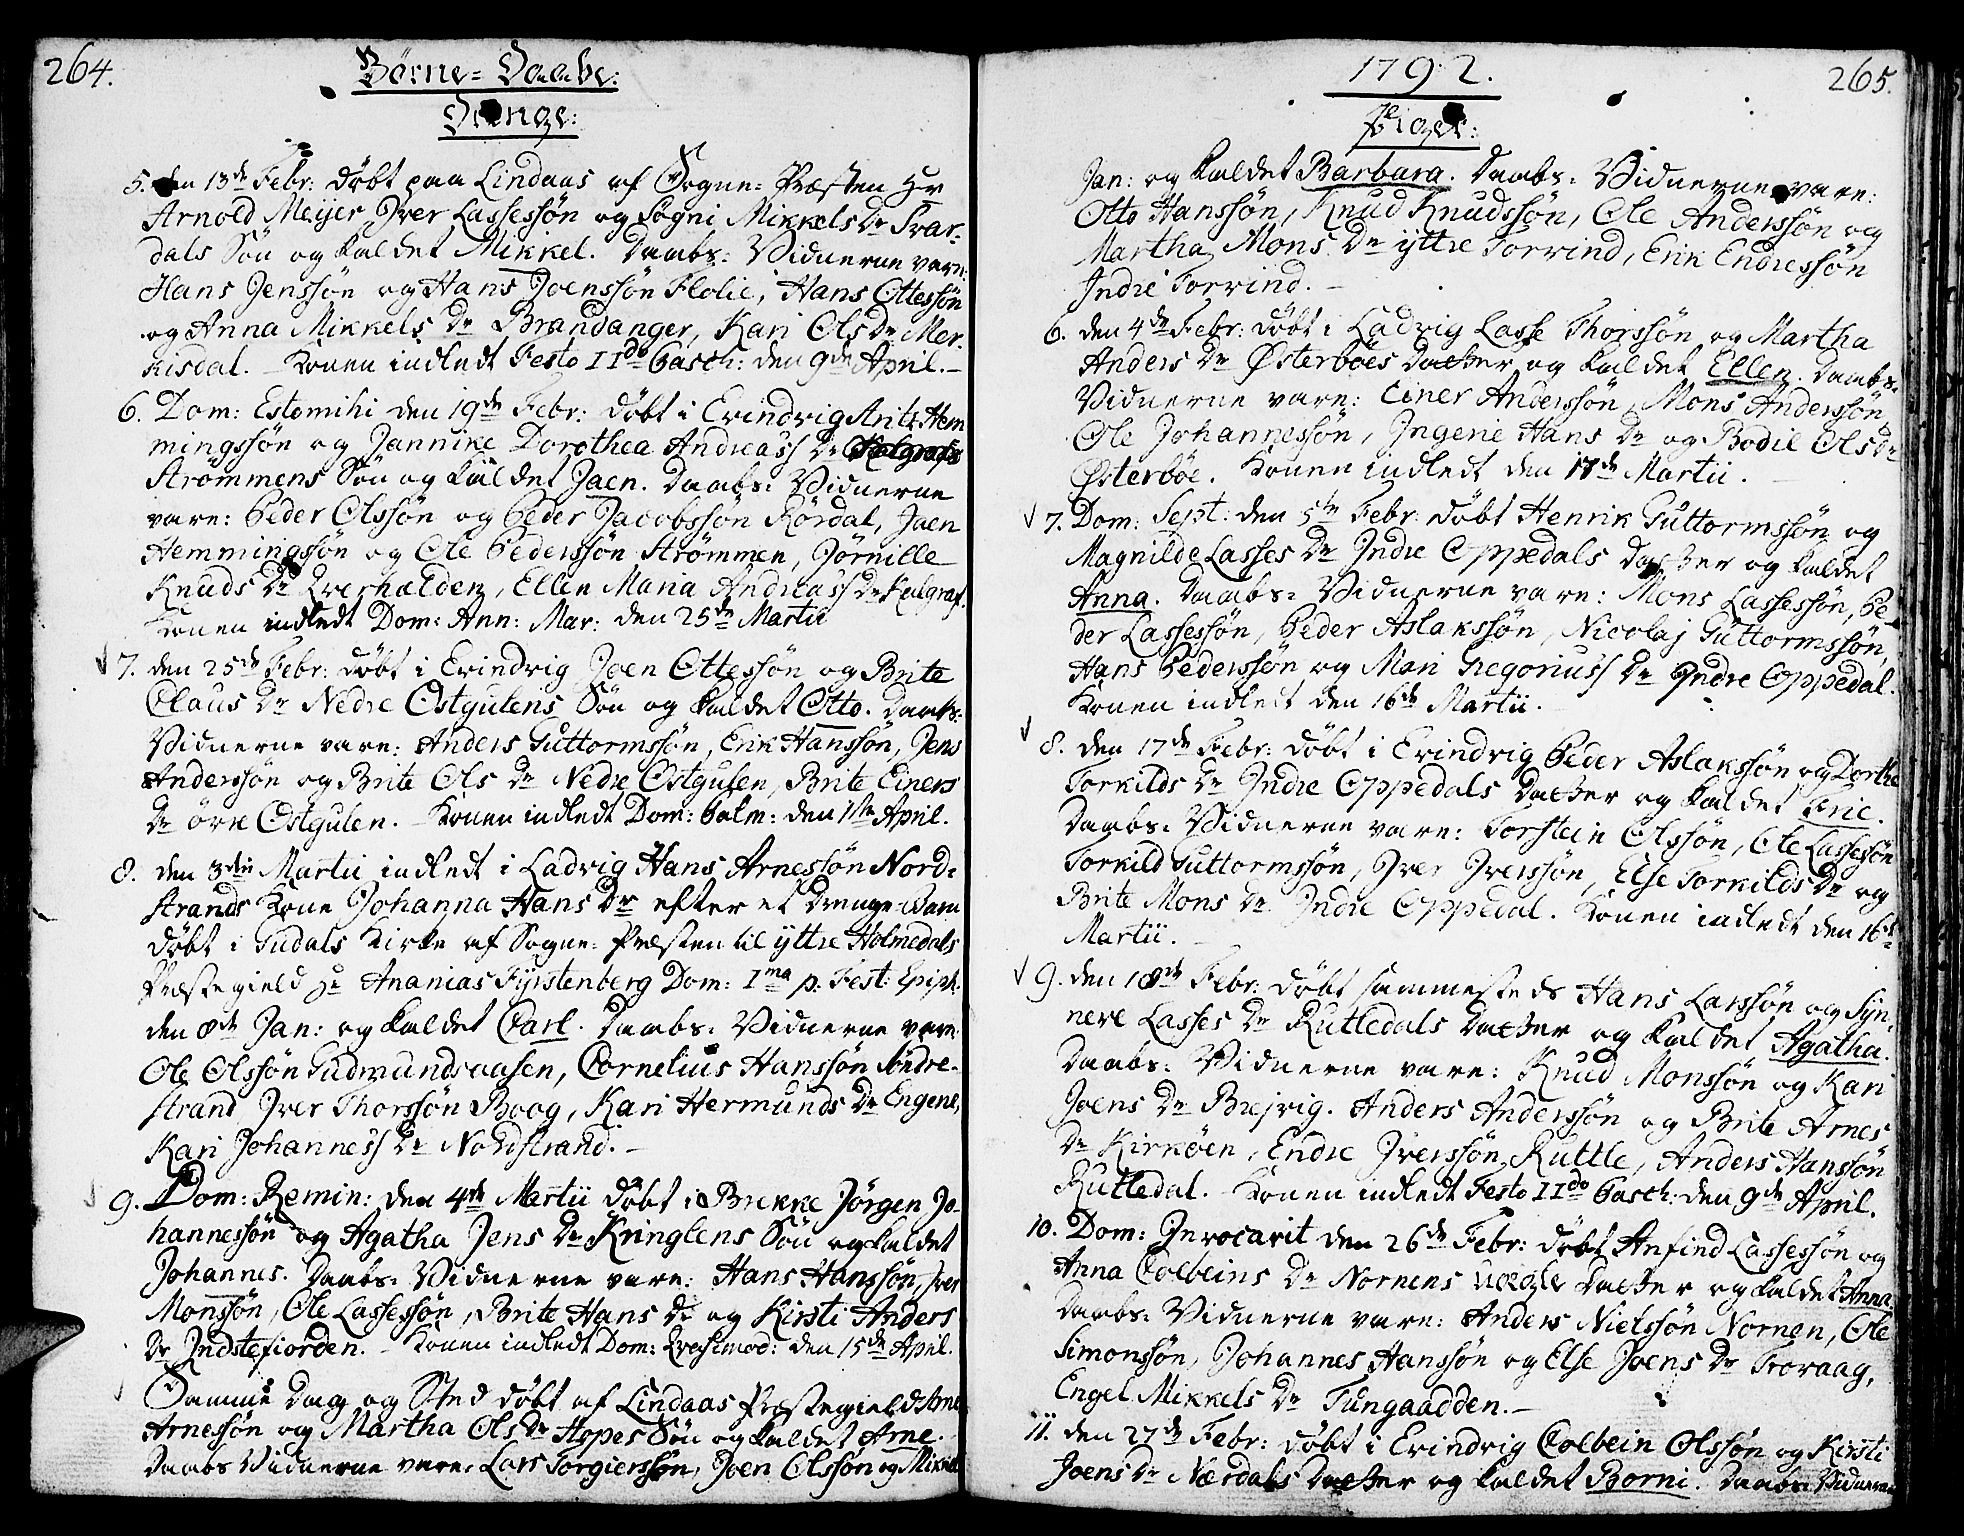 264.
Børne=Daabe:
Drenge:
5. den 13de Febr: døbt paa Lindaas af Sogne=Præsten Hr
Arnold Meijer Jver Lassessøn og Sogni Mikkels Dr Svar=
dals Søn og kaldet Mikkel. Daabs=Vidnerne vare:
Hans Jenssøn og Hans Joenssøn Flolie, Hans Ottessøn
og Anna Mikkels Dr Brandanger, Kari Ols Dr Mer=
kisdal. – Konen indledt Festo IIdo Pasch: den 9de April. –
6. Dom: Estomihi den 19de Febr: døbt i Evindvig Anits Hem
mingssøn og Jannike Dorothea Andreas Dr
Strømmens Søn og kaldet Jaen. Daabs=Vidnerne
vare: Peder Olssøn og Peder Jacobssøn Rørdal, Jaen
Hemmingssøn og Ole Pederssøn Strømmen, Jørnille
Knuds Dr Qverhælden, Ellen Maria Andreas Dr Kalgraf.
Konen indledt Dom: Ann: Mar: den 25de Martii
7. den 25de Febr: døbt i Evindvig Joen Ottessøn og Brite
Claus Dr Nedre Ostgulens Søn og kaldet Otto. Daabs=
Vidnerne vare: Anders Guttormssøn, Erik Hanssøn, Jens
Anderssøn og Brite Ols Dr Nedre Ostgulen, Brite Einers
Dr øvre Ostgulen. – Konen indledt Dom: Palm: den 1ste April.
8. den 3die Martii indledt i Ladvig Hans Arnessøn Nord=
strands Kone Johanna Hans Dr efter et Drenge-Barn
døbt i Gudals Kirke af Sogne=Præsten til yttre Holmedals
Præstegield Hr Ananias Fyrstenberg Dom: Ima p: Fest: Epiph.
den 8de Jan: og kaldet Carl. Daabs=Vidnerne vare:
Ole Olssøn Gudmundsaasen, Cornelius Hanssøn Søndre=
strand Jver Thorssøn Boog, Kari Hermunds Dr Engene,
Kari Johannes Dr Nordstrand. –
9. Dom: Remin: den 4de Martii døbt i Brekke Jørgen Jo=
hannessøn og Agatha Jens Dr Kringlens Søn og kaldet
Johannes. Daabs=Vidnerne vare: Hans Hanssøn, Jver
Monssøn, Ole Lassessøn, Brite Hans Dr og Kirsti Anders
Dr Jndstefiorden. – Konen indledt Dom: Qvasimod: den 15de April.
Samme Dag og Sted døbt af Lindaas Præstegield Arne
Arnessøn og Martha Ols Dr Hopes Søn og kaldet Arne.
Daabs Vidnerne vare: Lars Torgierssøn, Joen Olssøn og Mikkel
1792.
265.
Piger:
Jan: og kaldet Barbara. Daabs=Vidnerne vare:
Otto Hanssøn, Knud Knudssøn, Ole Anderssøn og
Martha Mons Dr yttre Torvind, Erik Endressøn
Jndre Torvind. –
6. den 4de Febr: døbt i Ladvig Lasse Thorssøn og Martha
Anders Dr Østerbøes Datter og kaldet Ellen. Daabs=
Vidnerne vare: Einer Anderssøn, Mons Anderssøn
Ole Johannessøn, Jngerie Hans Dr og Bodil Ols Dr
Østerbøe. Konen indledt den 17de Martii. –
7. Dom: Sept: den 5te Febr: døbt Henrik Guttormssøn og
Magnilde Lasses Dr Jndre Oppedals Datter og kaldet
Anna. Daabs=Vidnerne vare: Mons Lassessøn, Pe=
der Lassessøn, Peder Aslakssøn, Nicolaj Guttormssøn,
Hans Pederssøn og Mari Gregorius Dr Jndre Oppedal.
Konen indledt den 16de Martii. –
8. den 17de Febr: døbt i Evindvig Peder Aslakssøn og Dorthe
Torkilds Dr Jndre Oppedals Datter og kaldet Eric.
Daabs=Vidnerne vare: Torstein Olssøn, Ole Lassessøn
Torkild Guttormssøn, Jver Jverssøn, Else Torkilds Dr og
Brite Mons Dr Jndre Oppedal. Konen indledt den 16de
Martii. –
9. den 18de Febr: døbt sammesteds Hans Larssøn og Syn=
nere Lasses Dr Rutledals Datter og kaldet Agatha.
Daabs=Vidnerne vare: Knud Monssøn og Kari
Joens Dr Brejvig. Anders Anderssøn og Brite Arnes
Dr Kirkøen, Endre Jverssøn Ruttle, Anders Hanssøn
Rutledal. – Konen indledt Festo IIdo Pasch: den 9de April.
10. Dom: Jnvocavit den 26de Febr: døbt Anfind Lassessøn og
Anna Colbeins Dr Nornens uægte Datter og kaldet Anna
Daabs=Vidnerne vare: Anders Nielssøn Nornen, Ole
Simonssøn, Johannes Hanssøn og Else Joens Dr Trovaag,
Engel Mikkels Dr Tungaadden. –
11. den 27de Febr: døbt i Evindvig Colbein Olssøn og Kirsti
Joens Dr Nærdals Datter og kaldet Borni. Daabs=Vidnerne